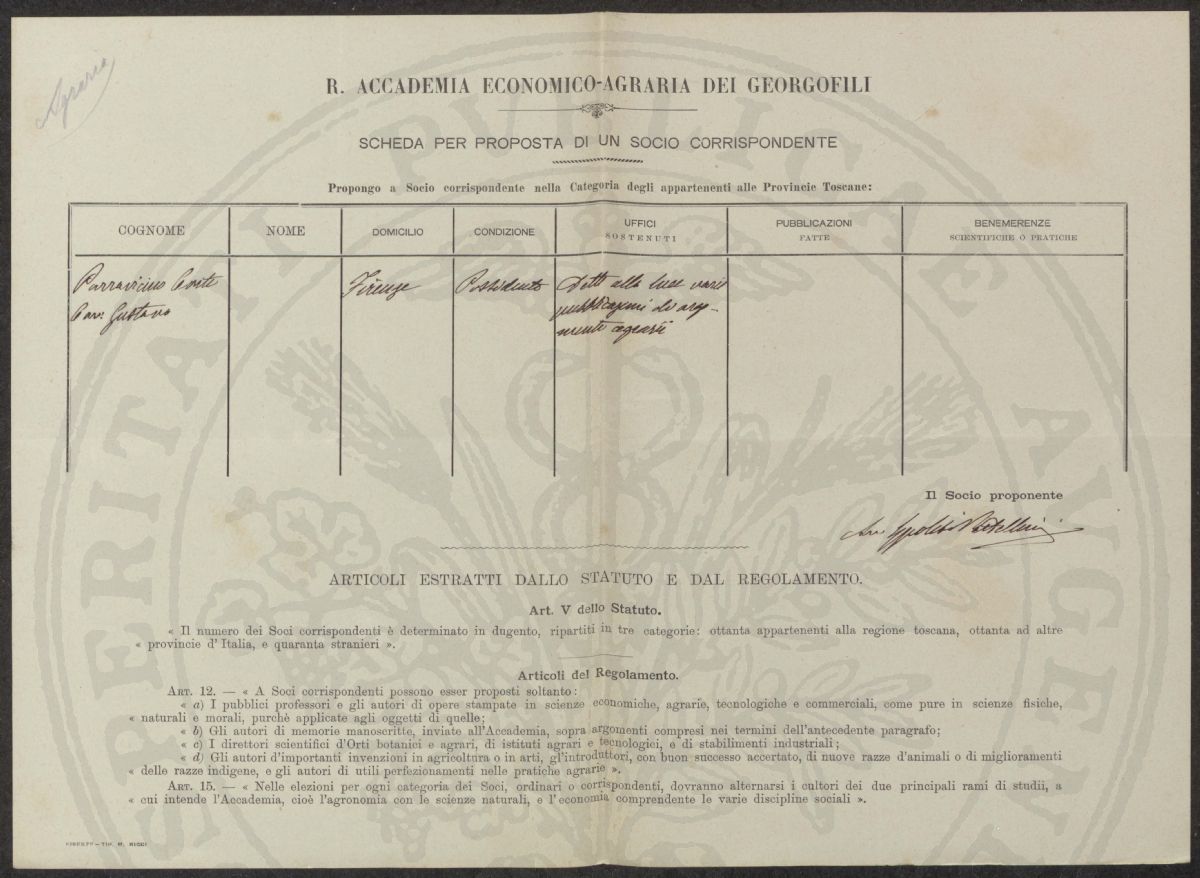 Agraria
R. ACCADEMIA ECONOMICO-AGRARIA DEI GEORGOFILI
SCHEDA PER PROPOSTA DI UN SOCIO CORRISPONDENTE
Propongo a Socio corrispondente nella Categoria degli appartenenti alle Provincie Toscane:
COGNOME
NOME
DOMICILIO
CONDIZIONE
UFFICI
SOSTENUTI
PUBBLICAZIONI
FATTE
BENEMERENZE
SCIENTIFICHE O PRATICHE
Parravicino Conte
Cav. Gustavo
Firenze
Possidente
Dette alla luce varie
pubblicazioni di argo-
mento agrario
Il Socio proponente
Ippolito
ARTICOLI ESTRATTI DALLO STATUTO E DAL REGOLAMENTO.
Art. V dello Statuto.
« Il numero dei Soci corrispondenti è determinato in dugento, ripartiti in tre categorie: ottanta appartenenti alla regione toscana, ottanta ad altre
« provincie d'Italia, e quaranta stranieri ».
Articoli del Regolamento.
ART. 12. — « A Soci corrispondenti possono esser proposti soltanto:
« a) I pubblici professori e gli autori di opere stampate in scienze economiche, agrarie, tecnologiche e commerciali, come pure in scienze fisiche,
« naturali e morali, purchè applicate agli oggetti di quelle;
« b) Gli autori di memorie manoscritte, inviate all'Accademia, sopra argomenti compresi nei termini dell'antecedente paragrafo;
« c) I direttori scientifici d'Orti botanici e agrari, di istituti agrari e tecnologici, e di stabilimenti industriali;
« d) Gli autori d'importanti invenzioni in agricoltura o in arti, gl'introduttori, con buon successo accertato, di nuove razze d'animali o di miglioramenti
« delle razze indigene, e gli autori di utili perfezionamenti nelle pratiche agrarie ».
ART. 15. — « Nelle elezioni per ogni categoria dei Soci, ordinari o corrispondenti, dovranno alternarsi i cultori dei due principali rami di studii, a
« cui intende l'Accademia, cioè l'agronomia con le scienze naturali, e l'economia comprendente le varie discipline sociali ».
FIRENZE — TIP. M. RICCI
PROSPERITATI PUBLICAE AVGENDAE